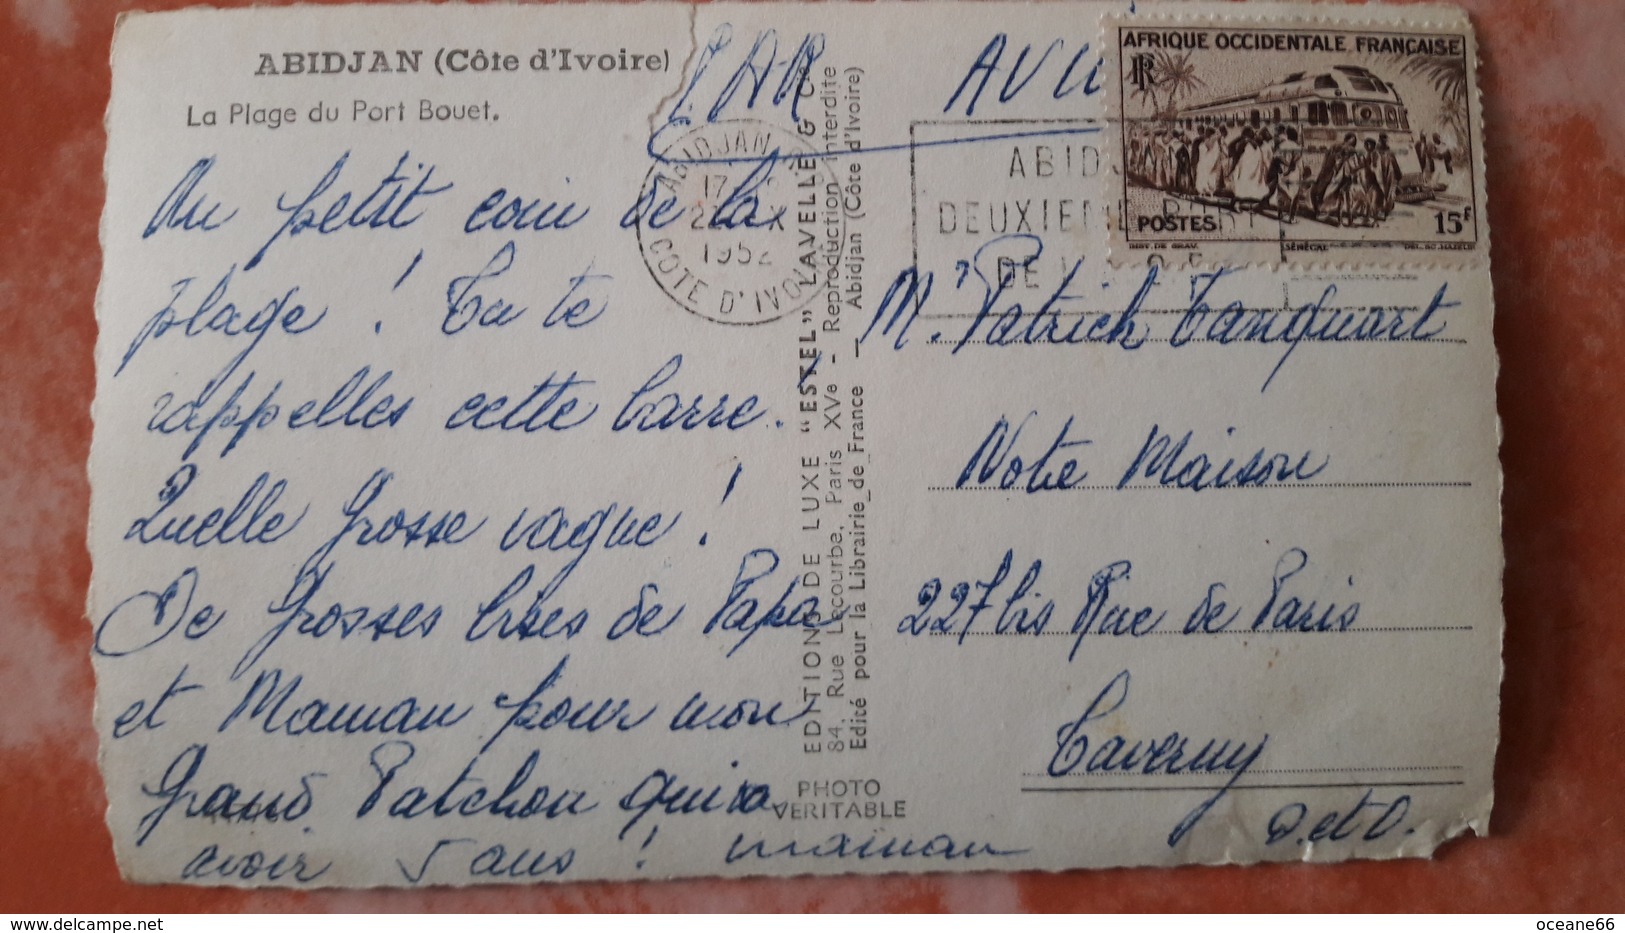 ABIDJAN (Côte d'Ivoire)
La Plage du Port Bouet.
Un petit coin de la
plage ! Tu te
rappelles cette barre.
Quelle grosse vague !
De grosses bises de Papa
et Maman pour mon
grand Patchou qui va
avoir 5 ans ! maman
ABIDJAN
17
2 X
1952
COTE D'IVOIRE
EDITIONS DE LUXE "ESTEL" LAVELLE & Cie
84, Rue Lecourbe, Paris XVe - Reproduction interdite
Edité pour la Librairie de France — Abidjan (Côte d'Ivoire)
PHOTO
VERITABLE
PAR AVION
AFRIQUE OCCIDENTALE FRANÇAISE
RF
POSTES
15F
INST. DE GRAV.
SÉNÉGAL
ABIDJ
DEUXIEME PORT
DE L'A.O.F.
M. Patrick Tanquart
Notre Maison
227 bis Rue de Paris
Taverny
S. et O.
oceane66